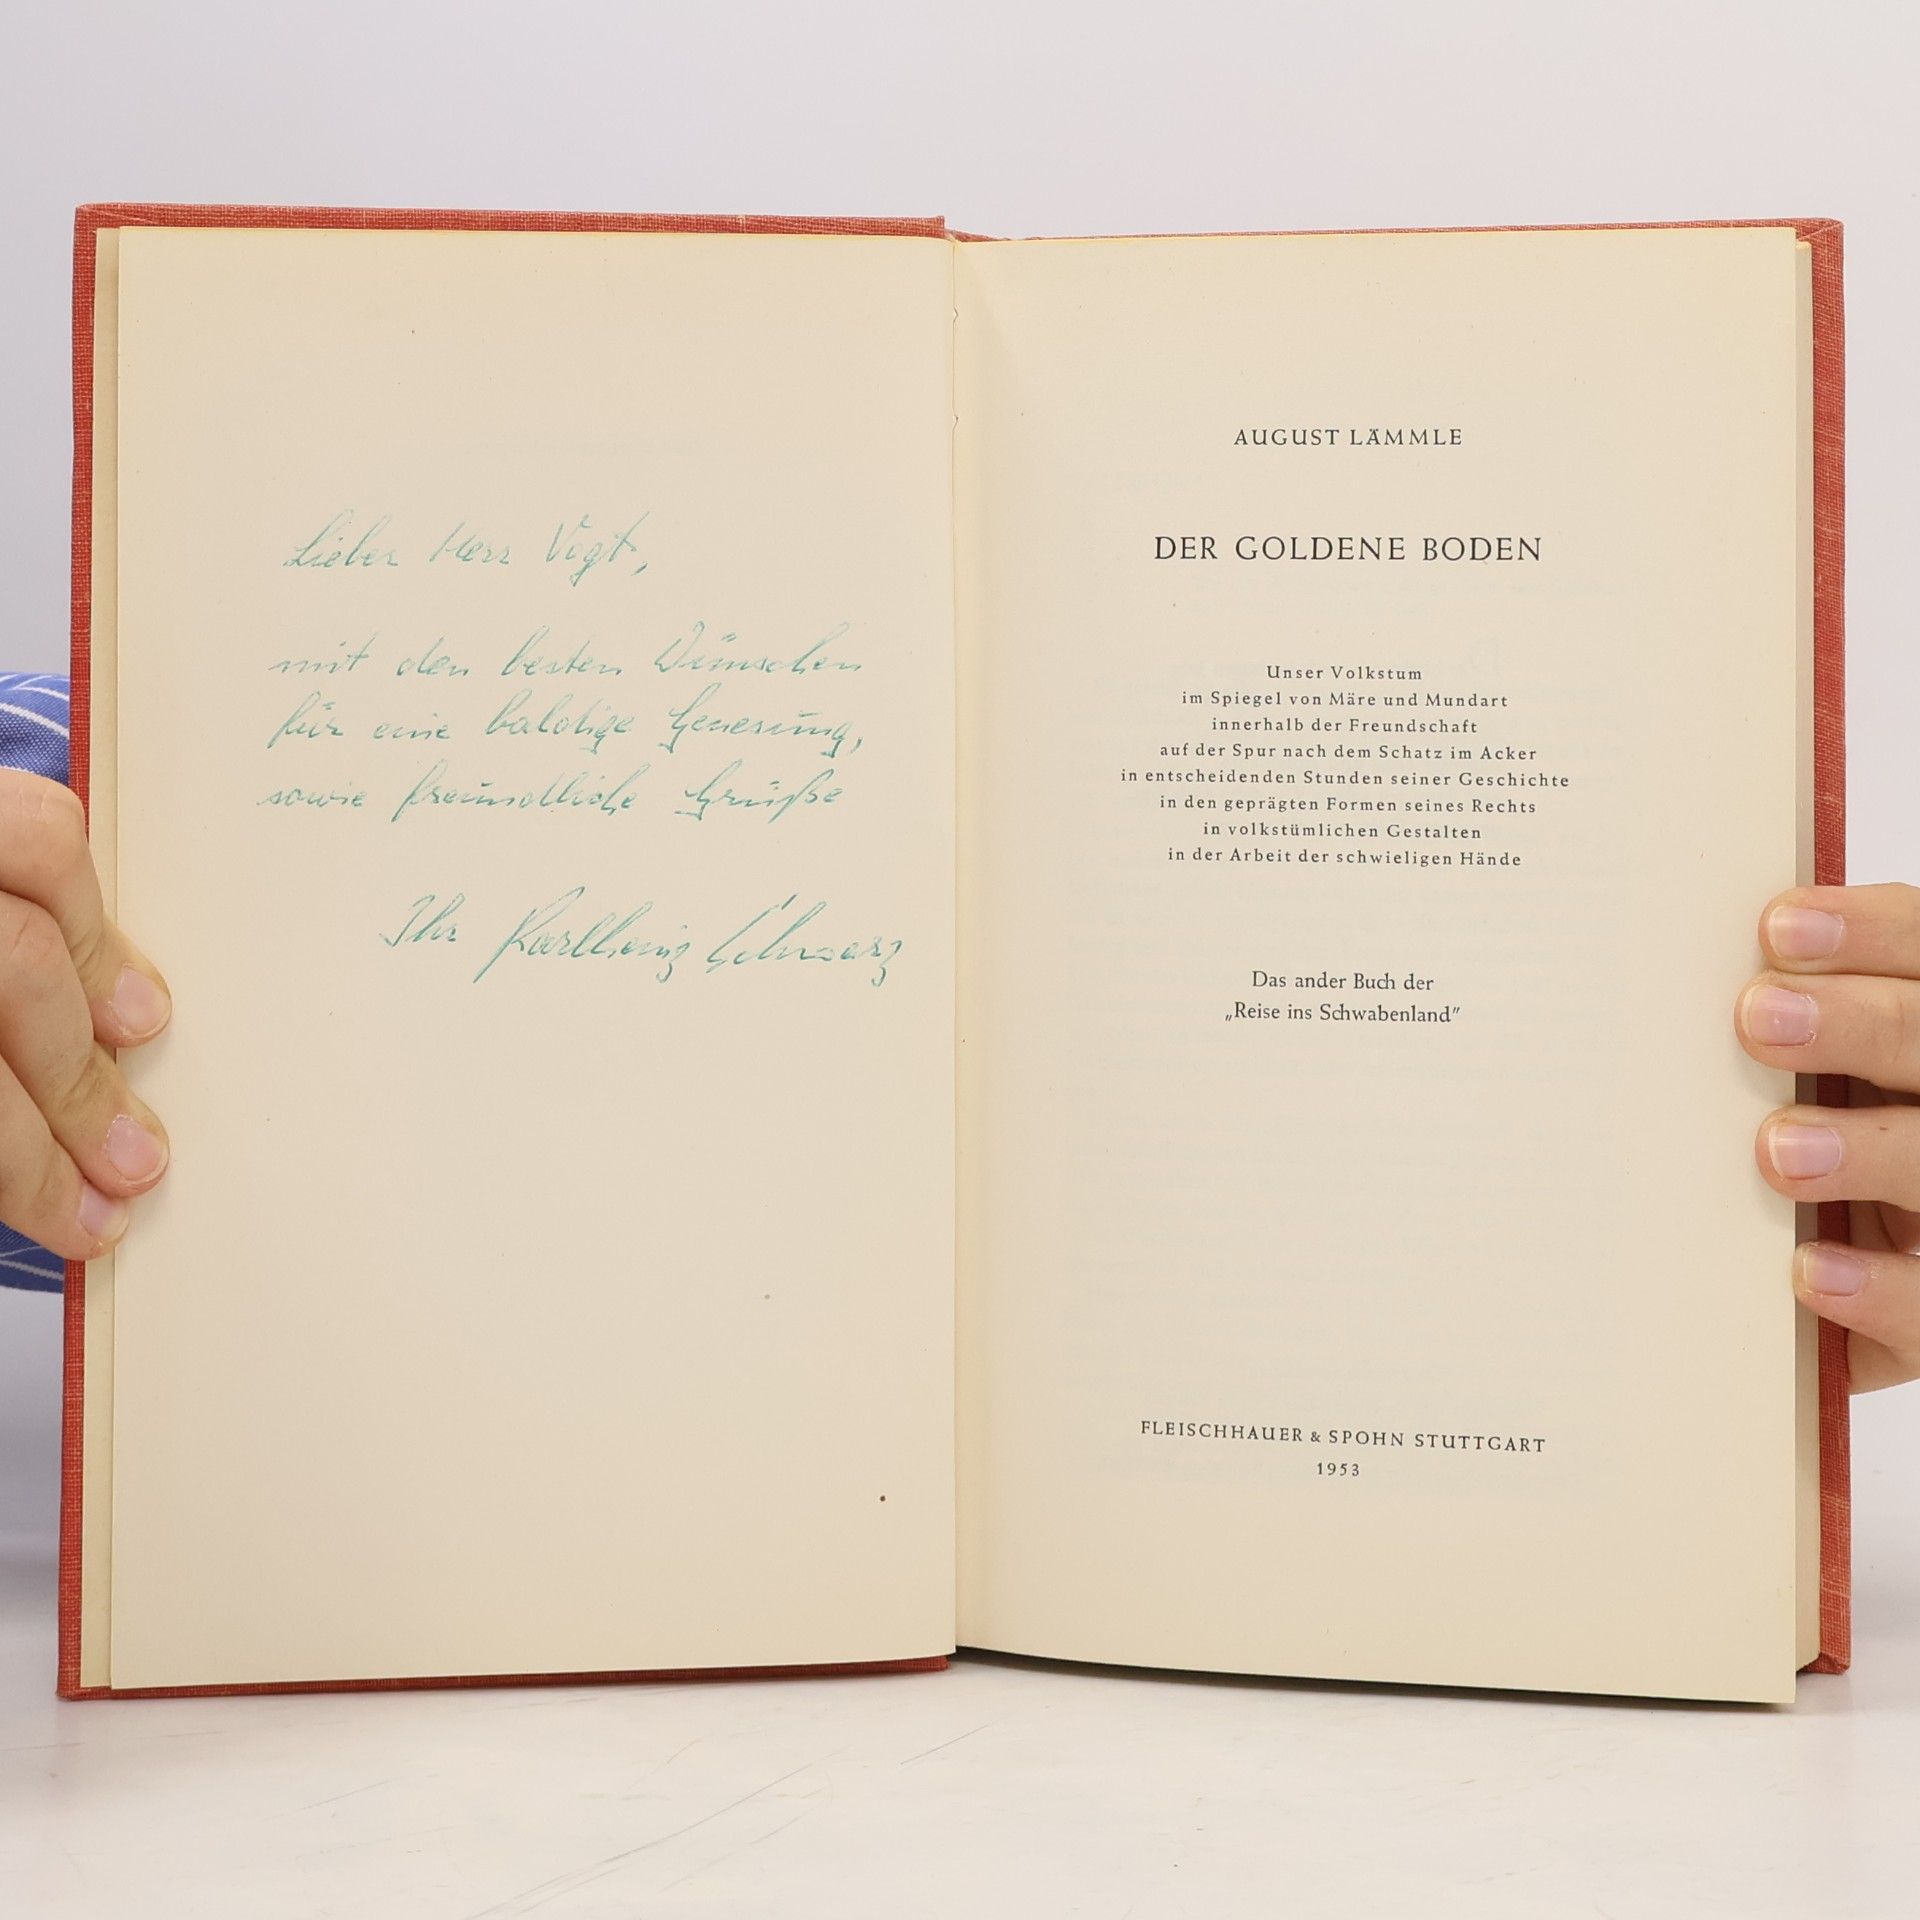 Lieber Herr Vogt,
mit den besten Wünschen
für eine baldige Genesung,
sowie freundliche Grüße
Ihr Karlheinz Schwarz
AUGUST LÄMMLE
DER GOLDENE BODEN
Unser Volkstum
im Spiegel von Märe und Mundart
innerhalb der Freundschaft
auf der Spur nach dem Schatz im Acker
in entscheidenden Stunden seiner Geschichte
in den geprägten Formen seines Rechts
in volkstümlichen Gestalten
in der Arbeit der schwieligen Hände
Das ander Buch der
„Reise ins Schwabenland"
FLEISCHHAUER & SPOHN STUTTGART
1953